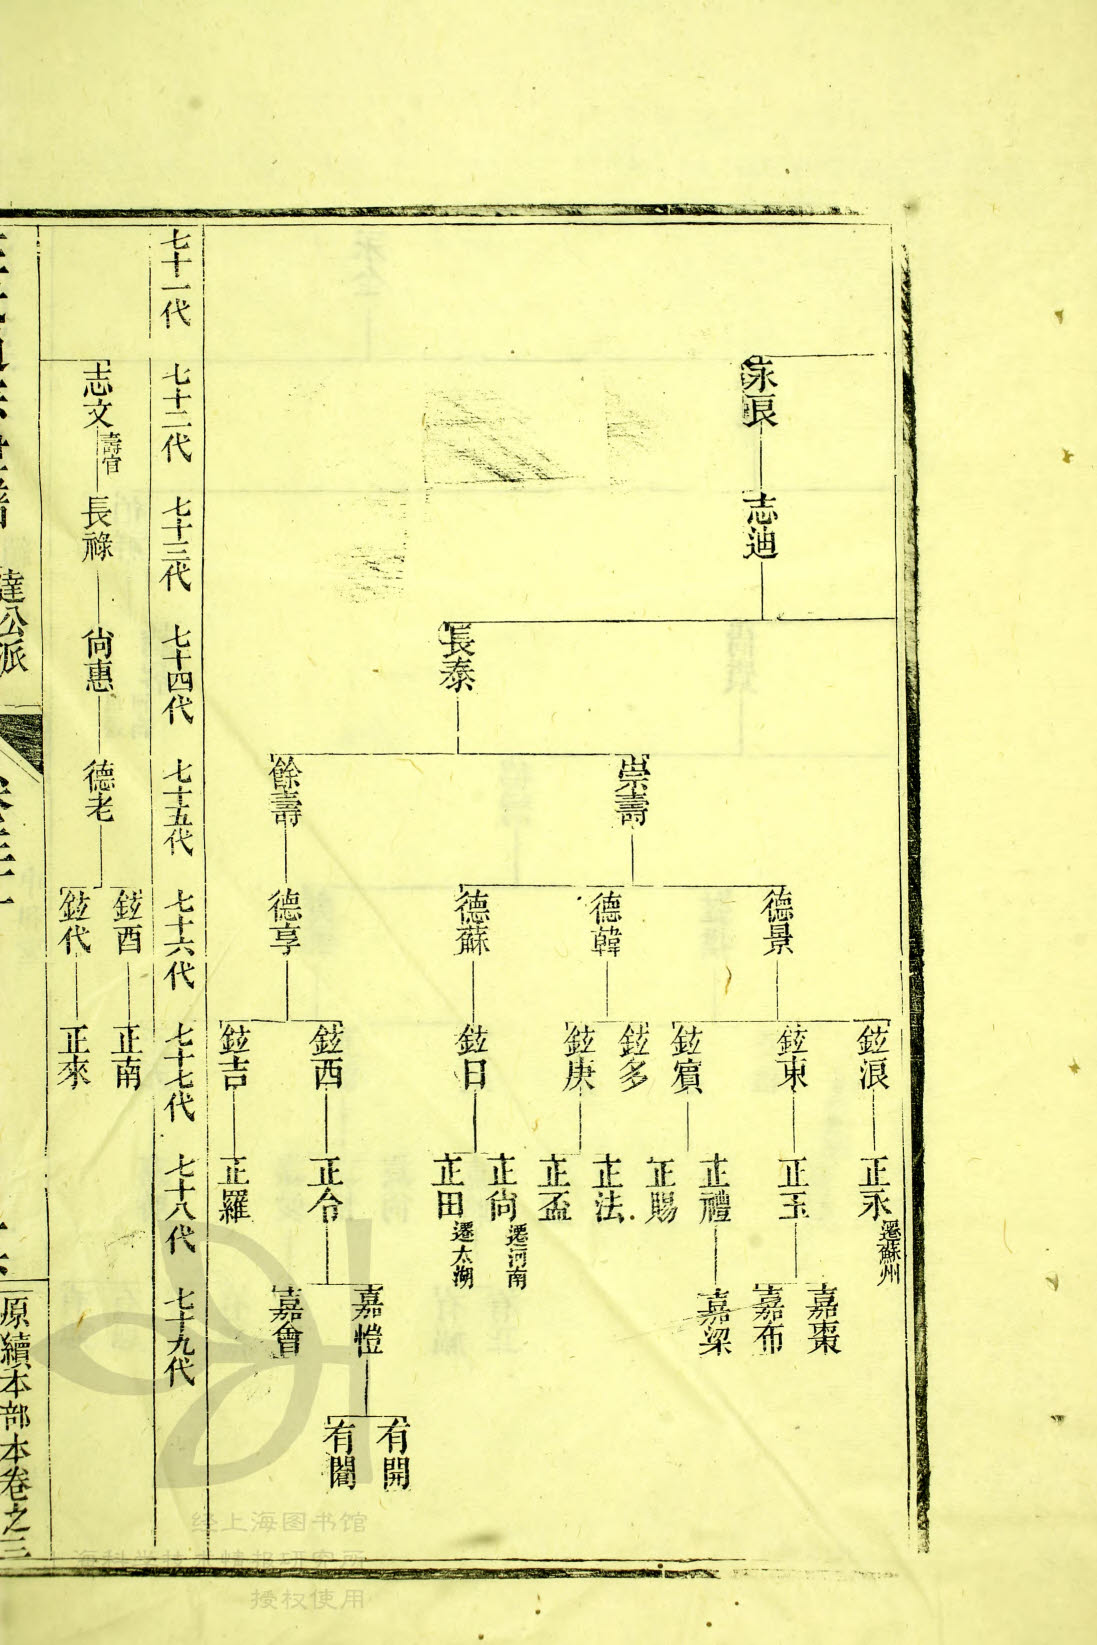 永良
志迪
長泰
崇壽
餘壽
德景
德韓
德蘇
德享
鉉浪
鉉東
鉉賔
鉉多
鉉庚
鉉日
鉉西
鉉吉
正永 遷蘇州
正玉
正禮
正賜
正法
正盃
正尙 遷河南
正田 遷太湖
正令
正羅
嘉棗
嘉布
嘉梁
嘉愷
嘉會
有開
有閣
七十一代
七十二代
七十三代
七十四代
七十五代
七十六代
七十七代
七十八代
七十九代
志文 壽官
長祿
尙惠
德老
鉉酉
鉉代
正南
正來
達公派
原續本部本卷之三
经上海图书馆
海科学技术情报研究所
授权使用